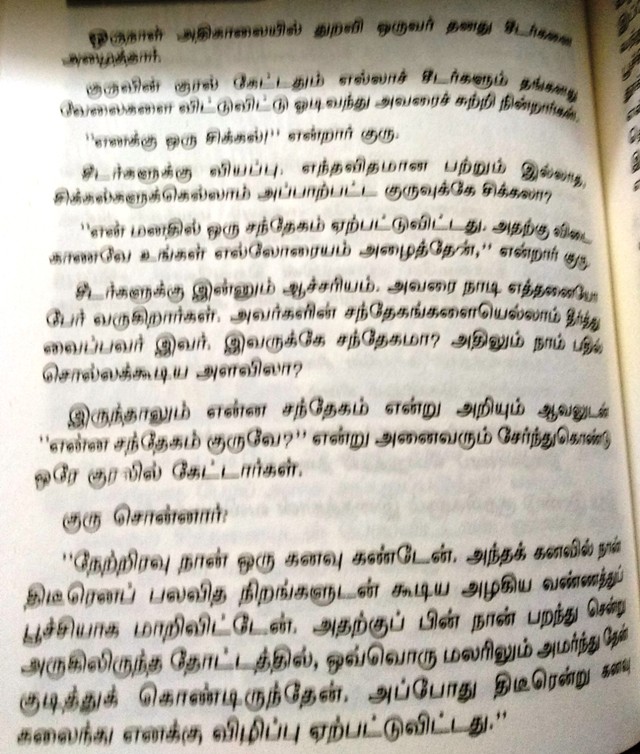 ஒருநாள் அதிகாலையில் துறவி ஒருவர் தனது சீடர்களை
அழைத்தார்.
குருவின் குரல் கேட்டதும் எல்லாச் சீடர்களும் தங்களது
வேலைகளை விட்டுவிட்டு ஓடிவந்து அவரைச் சுற்றி நின்றார்கள்.
"எனக்கு ஒரு சிக்கல்!" என்றார் குரு.
சீடர்களுக்கு வியப்பு. எந்தவிதமான பற்றும் இல்லாத,
சிக்கல்களுக்கெல்லாம் அப்பாற்பட்ட குருவுக்கே சிக்கலா?
"என் மனதில் ஒரு சந்தேகம் ஏற்பட்டுவிட்டது. அதற்கு விடை
காணவே உங்கள் எல்லோரையம் அழைத்தேன்," என்றார் குரு.
சீடர்களுக்கு இன்னும் ஆச்சரியம். அவரை நாடி எத்தனையோ
பேர் வருகிறார்கள். அவர்களின் சந்தேகங்களையெல்லாம் தீர்த்து
வைப்பவர் இவர். இவருக்கே சந்தேகமா? அதிலும் நாம் பதில்
சொல்லக்கூடிய அளவிலா?
இருந்தாலும் என்ன சந்தேகம் என்று அறியும் ஆவலுடன்
"என்ன சந்தேகம் குருவே?" என்று அனைவரும் சேர்ந்துகொண்டு
ஒரே குரலில் கேட்டார்கள்.
குரு சொன்னார்:
"நேற்றிரவு நான் ஒரு கனவு கண்டேன். அந்தக் கனவில் நான்
திடீரெனப் பலவித நிறங்களுடன் கூடிய அழகிய வண்ணத்துப்
பூச்சியாக மாறிவிட்டேன். அதற்குப் பின் நான் பறந்து சென்று
அருகிலிருந்த தோட்டத்தில், ஒவ்வொரு மலரிலும் அமர்ந்து தேன்
குடித்துக் கொண்டிருந்தேன். அப்போது திடீரென்று கனவு
கலைந்து எனக்கு விழிப்பு ஏற்பட்டுவிட்டது."